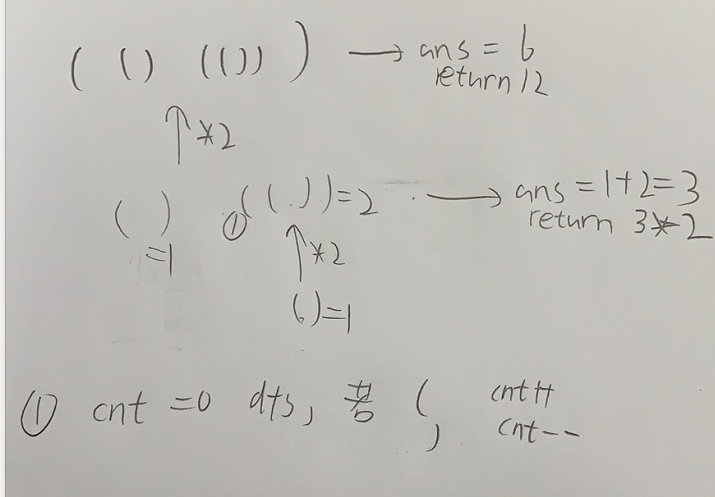 ( () (()) ) → ans = 6
return 12
↑*2
( ) ① ( ( ) ) = 2 → ans = 1+2 = 3
=1 return 3*2
↑*2
() = 1
① cnt = 0 dfs, 若 ( cnt++
) cnt--